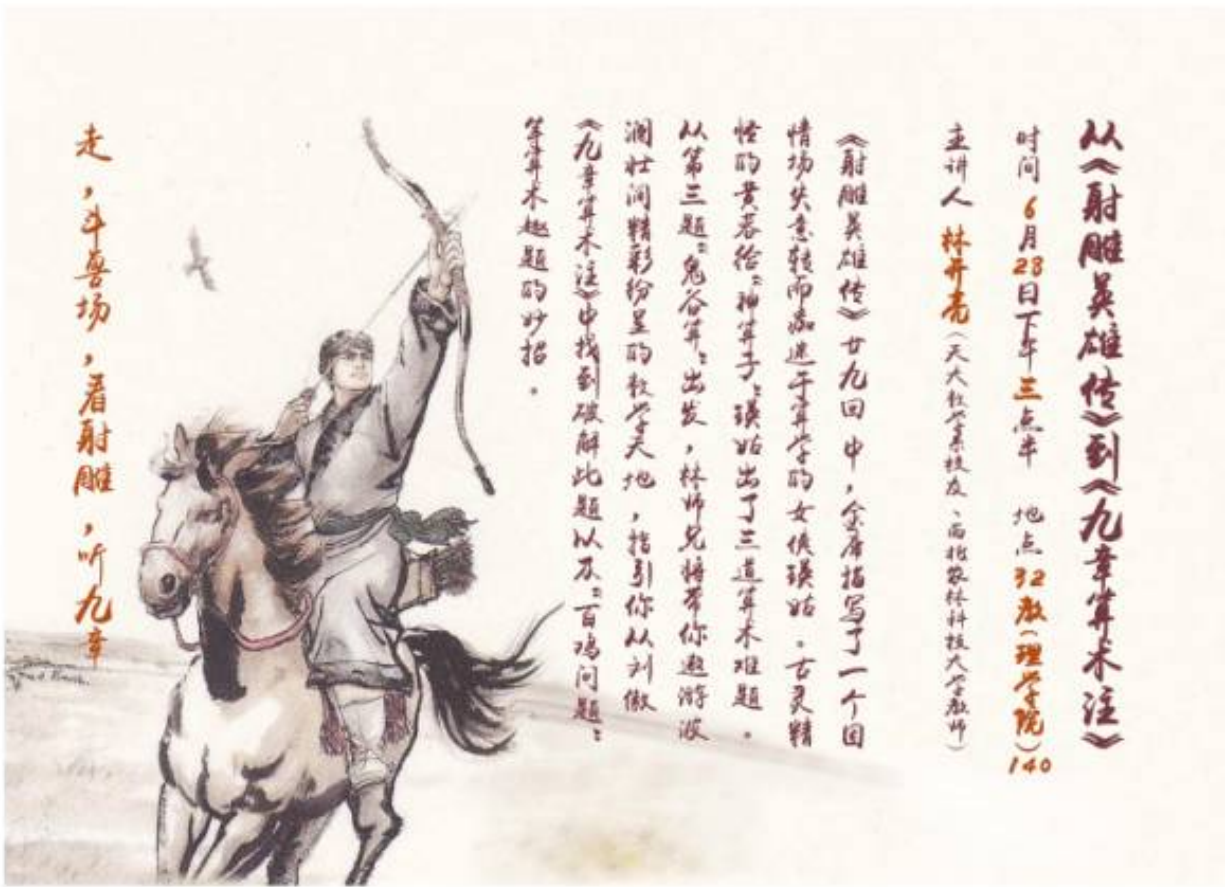 从《射雕英雄传》到《九章算术注》
时间 6月28日下午三点半 地点 32教(理学院)140
主讲人 林开亮(天大数学系校友、西北农林科技大学教师)
《射雕英雄传》廿九回中,金庸描写了一个因
情场失意转而痴迷于算学的女侠瑛姑。古灵精
怪的黄蓉给“神算子”瑛姑出了三道算术难题。
从第三题“鬼谷算”出发,林师兄将带你遨游波
澜壮阔精彩纷呈的数学天地,指引你从刘徽
《九章算术注》中找到破解此题以及“百鸡问题”
等算术趣题的妙招。
走,斗兽场,看射雕,听九章